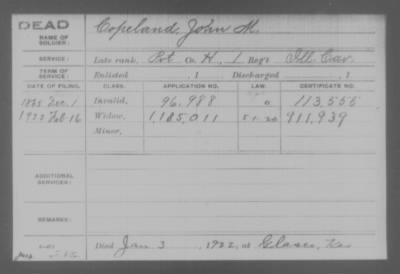 DEAD
NAME OF SOLDIER: Copeland, John M.
SERVICE: Late rank, Pvt Co. H, 1 Reg't Ill. Cav.
TERM OF SERVICE: Enlisted , 1 Discharged , 1
DATE OF FILING. CLASS. APPLICATION NO. LAW. CERTIFICATE NO.
1865 Dec. 1 Invalid, 96,988 0 113,555
1922 Feb-16 Widow, 1,185,011 5-1-20 911,939
Minor,
ADDITIONAL SERVICES:
REMARKS:
Died Jan 3, 1922, at Glasco, Kas